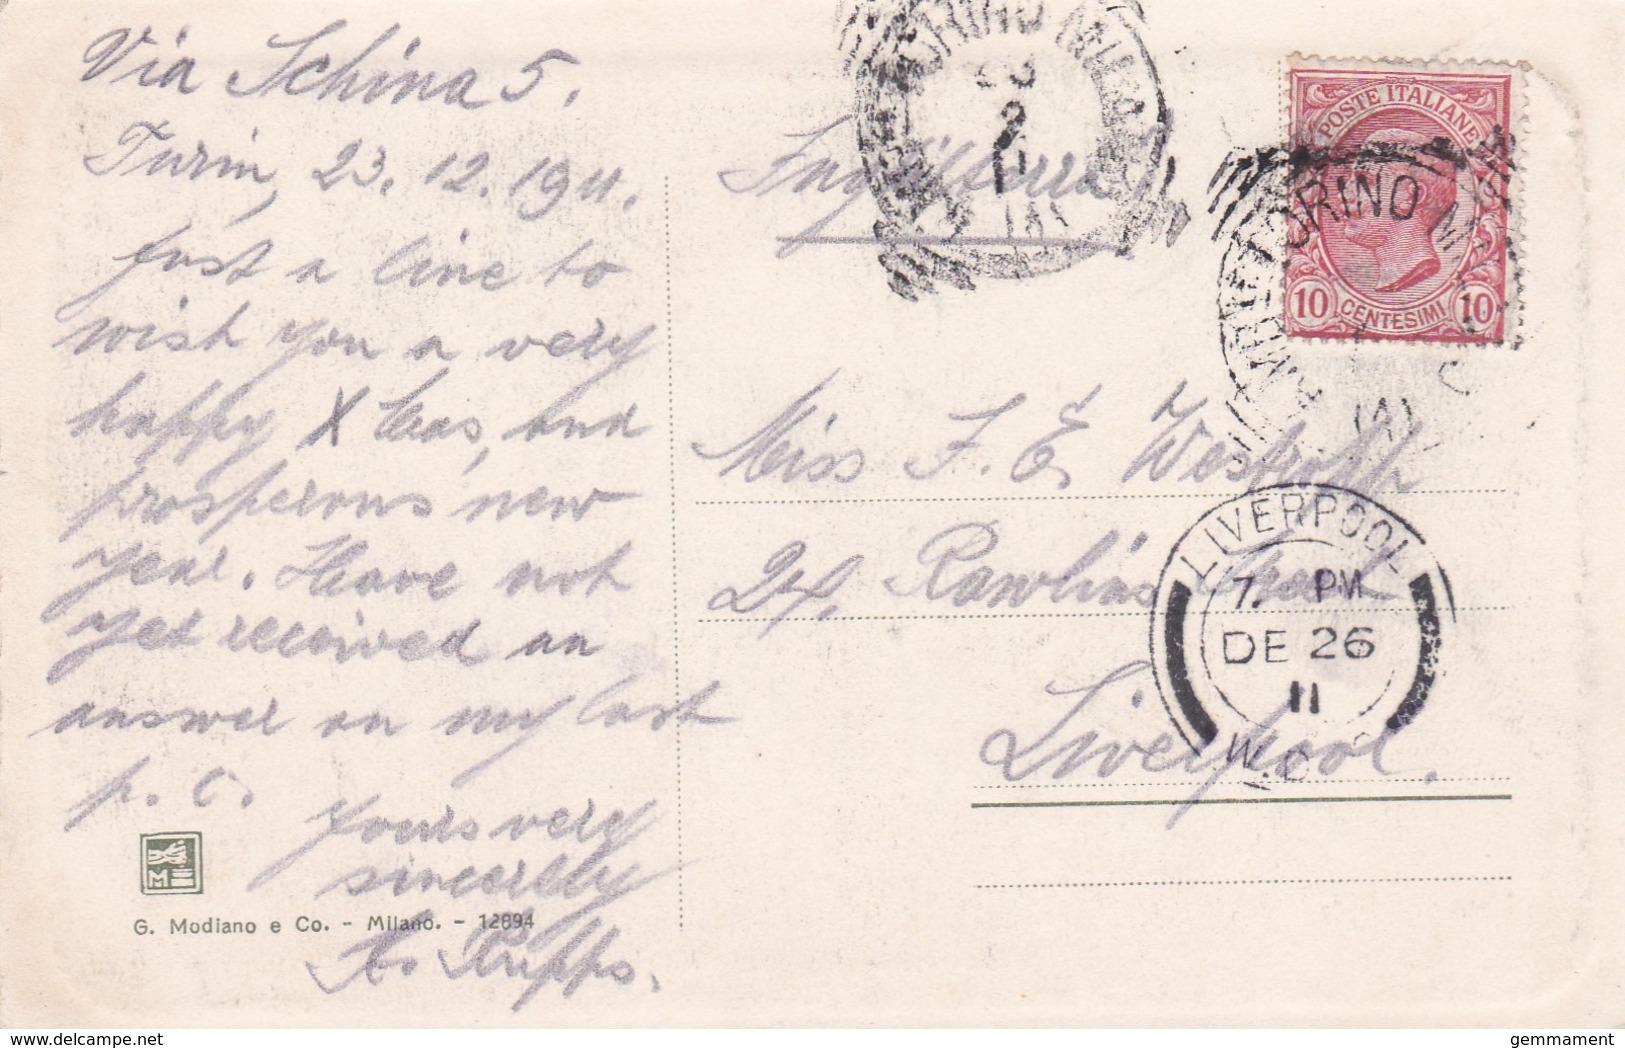 Via Schina 5.
Turin, 23. 12. 1911.
Just a line to
wish you a very
happy X mas, and
prosperous new
year. Have not
yet received an
answer on my last
p. c.
Yours very
sincerely
Krupps.
G. Modiano e Co. - Milano. - 12894
M
Inghilterra
TORINO
23
12
11
POSTE ITALIANE
10 CENTESIMI 10
TORINO
Miss F. E. Westropp
24, Rawlins Street
Liverpool.
LIVERPOOL
7. PM
DE 26
11
gemmament